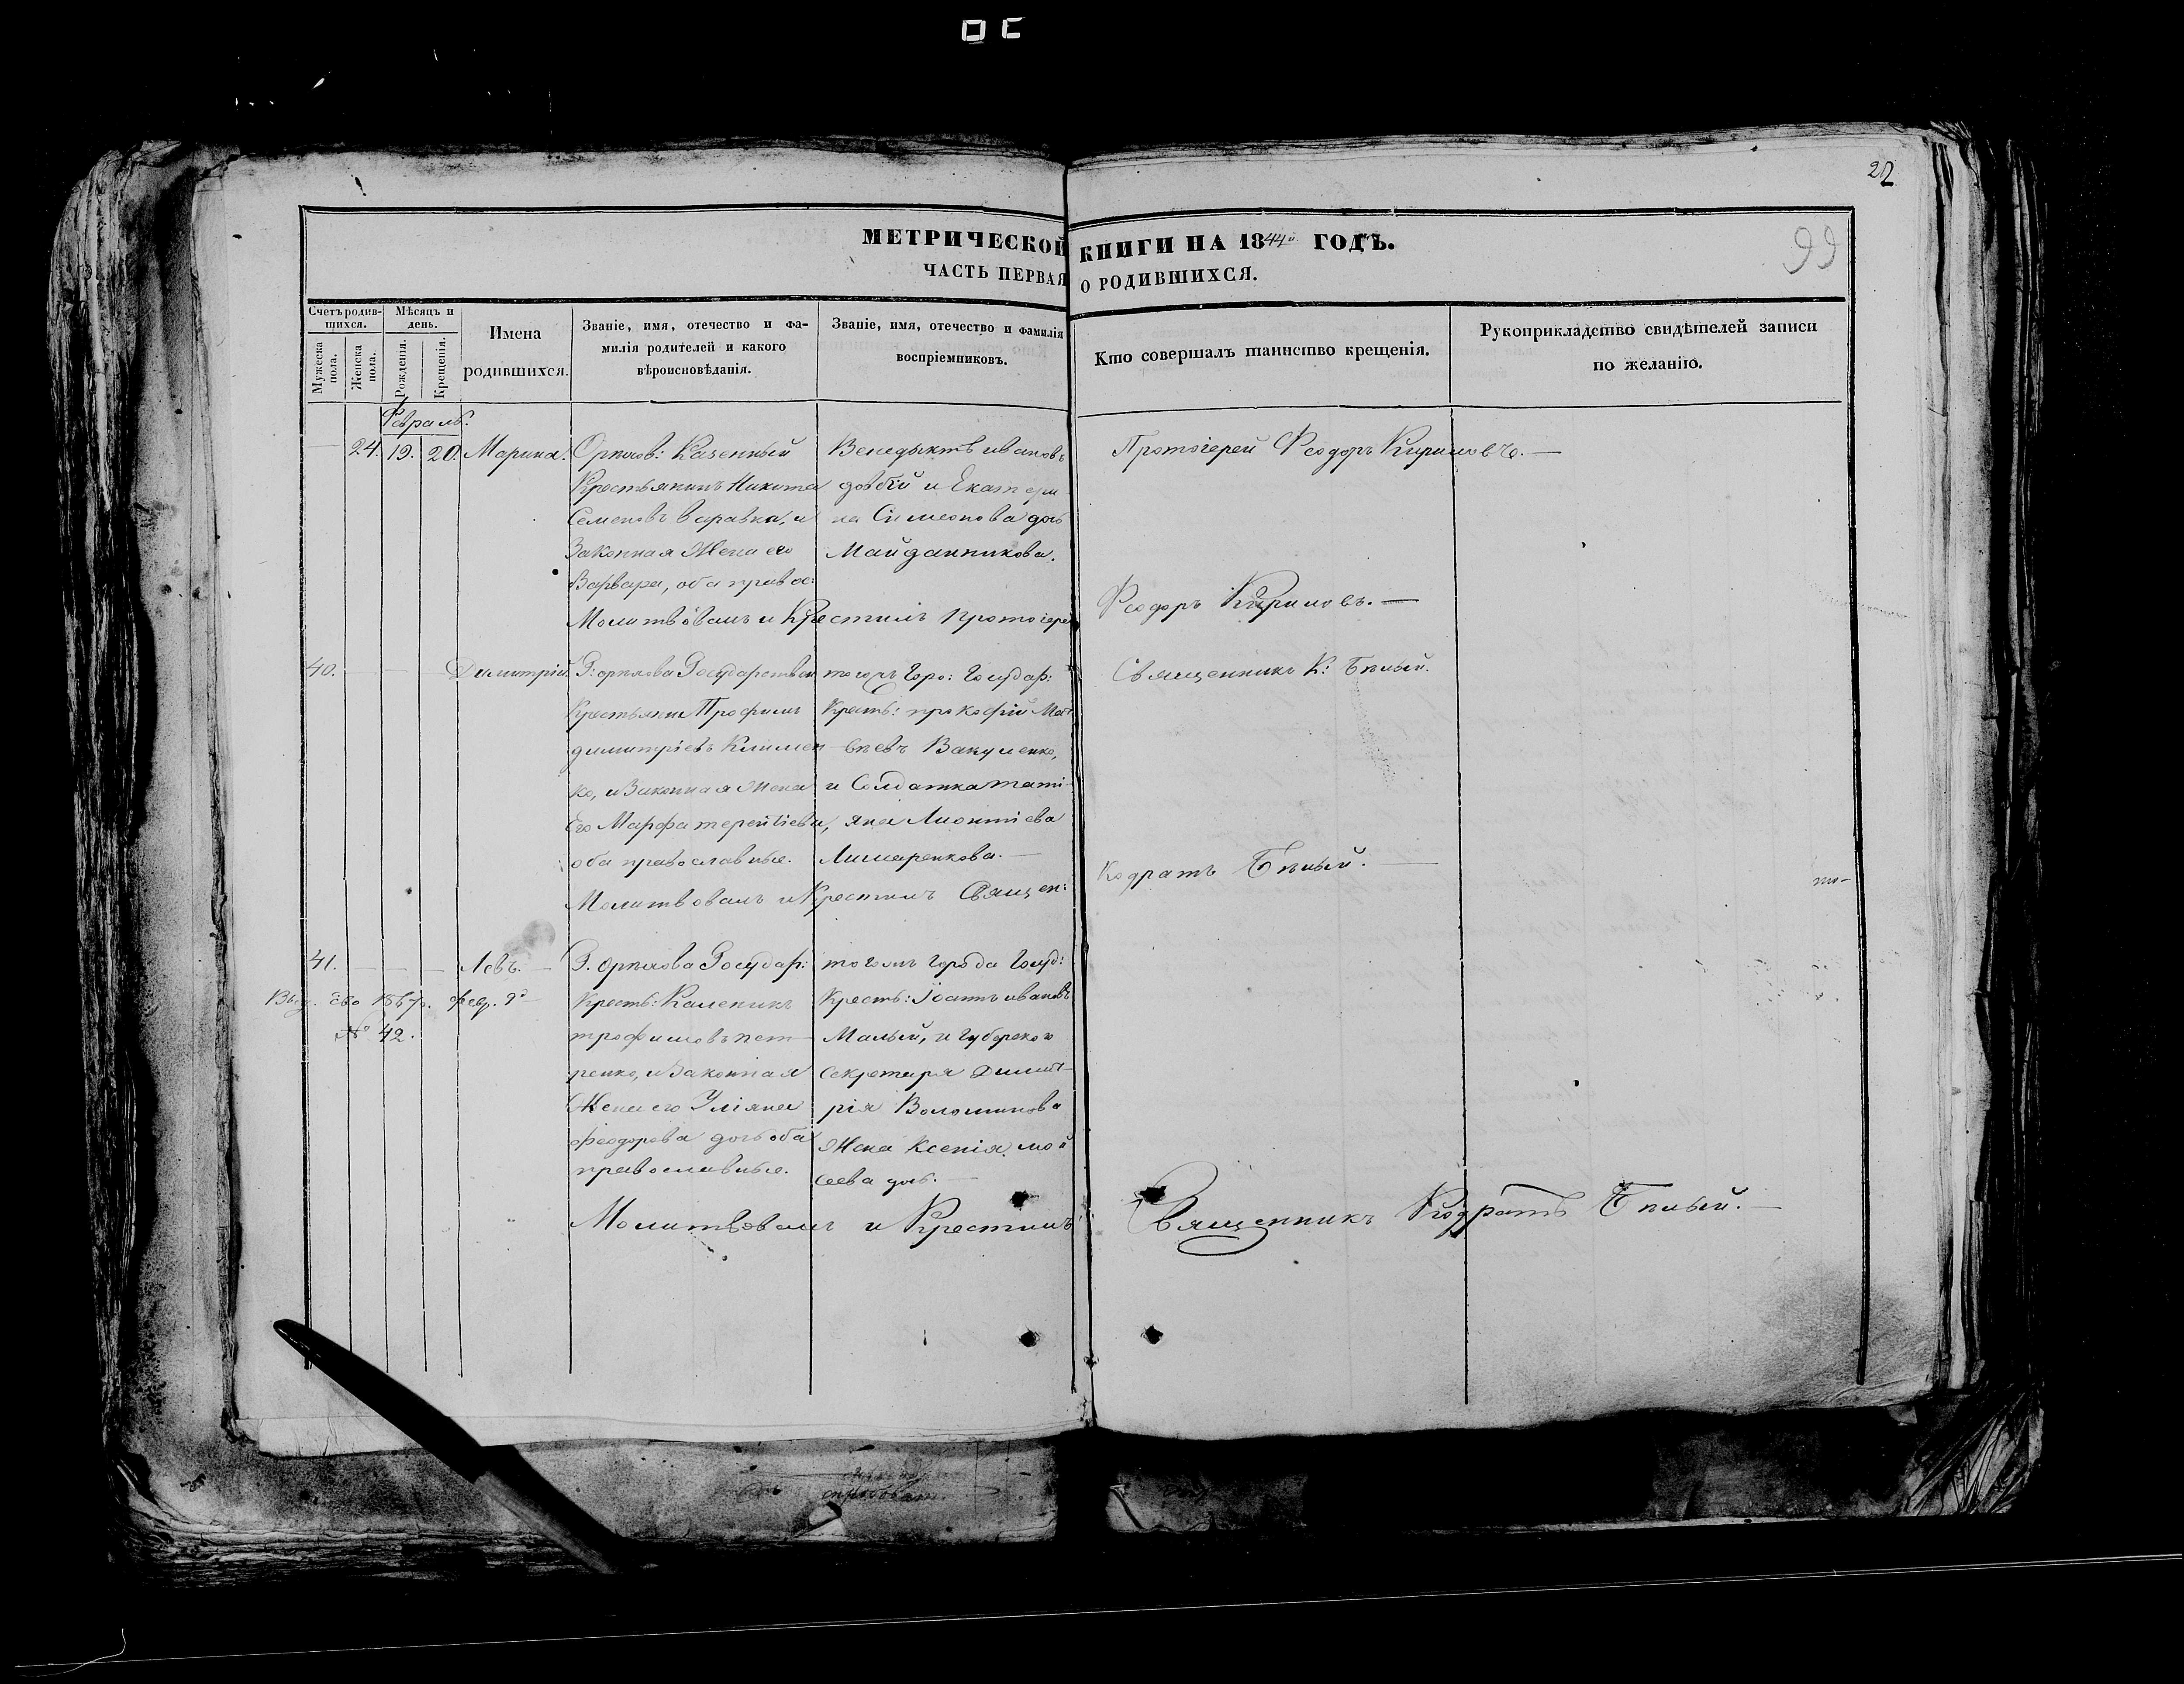 22
99
МЕТРИЧЕСКОЙ КНИГИ НА 1844й ГОДЪ.
ЧАСТЬ ПЕРВАЯ О РОДИВШИХСЯ.
Счетъ родив-
шихся.
Мужеска
пола.
Женска
пола.
Мѣсяцъ и
день.
Рожденія.
Крещенія.
Имена
родившихся.
Званіе, имя, отечество и фа-
милія родителей и какого
вѣроисповѣданія.
Званіе, имя, отечество и фамилія
воспріемниковъ.
Кто совершалъ таинство крещенія.
Рукоприкладство свидѣтелей записи
по желанію.
Февраль.
24. 19. 20. Марина.
Орѣхов: Казенный
Крестьянинъ Никита
Семеновъ и
Законная Жена его
Варвара, оба правос:
Венедыктъ ивановъ
довбій и Екатери
на Симеонова дочь
Майданникова.
Протоіерей Феодоръ Кириловъ.—
Молитвовалъ и Крестилъ протоіерей Феодоръ Кириловъ.—
40. Димитрій.
Г: орѣхова Государствен
Крестьянин Трофимъ
димитріевъ Климен
ко, и Законная Жена
Его Марфа терентіева,
оба православные.
тогожъ горо: государ:
Кресть: прокофій Мат
вѣевъ Вакуленко,
и Солдатка тати-
яна Лионтіева
Лимаренкова.—
Священникъ К: Бѣлый.
Молитвовалъ и Крестилъ Священ: Кодратъ Бѣлый.—
41. Левъ.—
Выд. Сво 1867 г. фев. 9го
№ 42.
Г. Орѣхова Государ:
Кресть: Каленикъ
трофимовъ пет
ренко, и Законная
Жена его Уліяна
феодорова дочь оба
православные.
тогожъ города госуд:
Кресть: Іоаннъ ивановъ
Малый, и губерског
Секретаря Димит-
рія Волошинова
Жена Ксенія мой
сеева дочь.—
Молитвовалъ и Крестилъ Священникъ Кодратъ Бѣлый.—